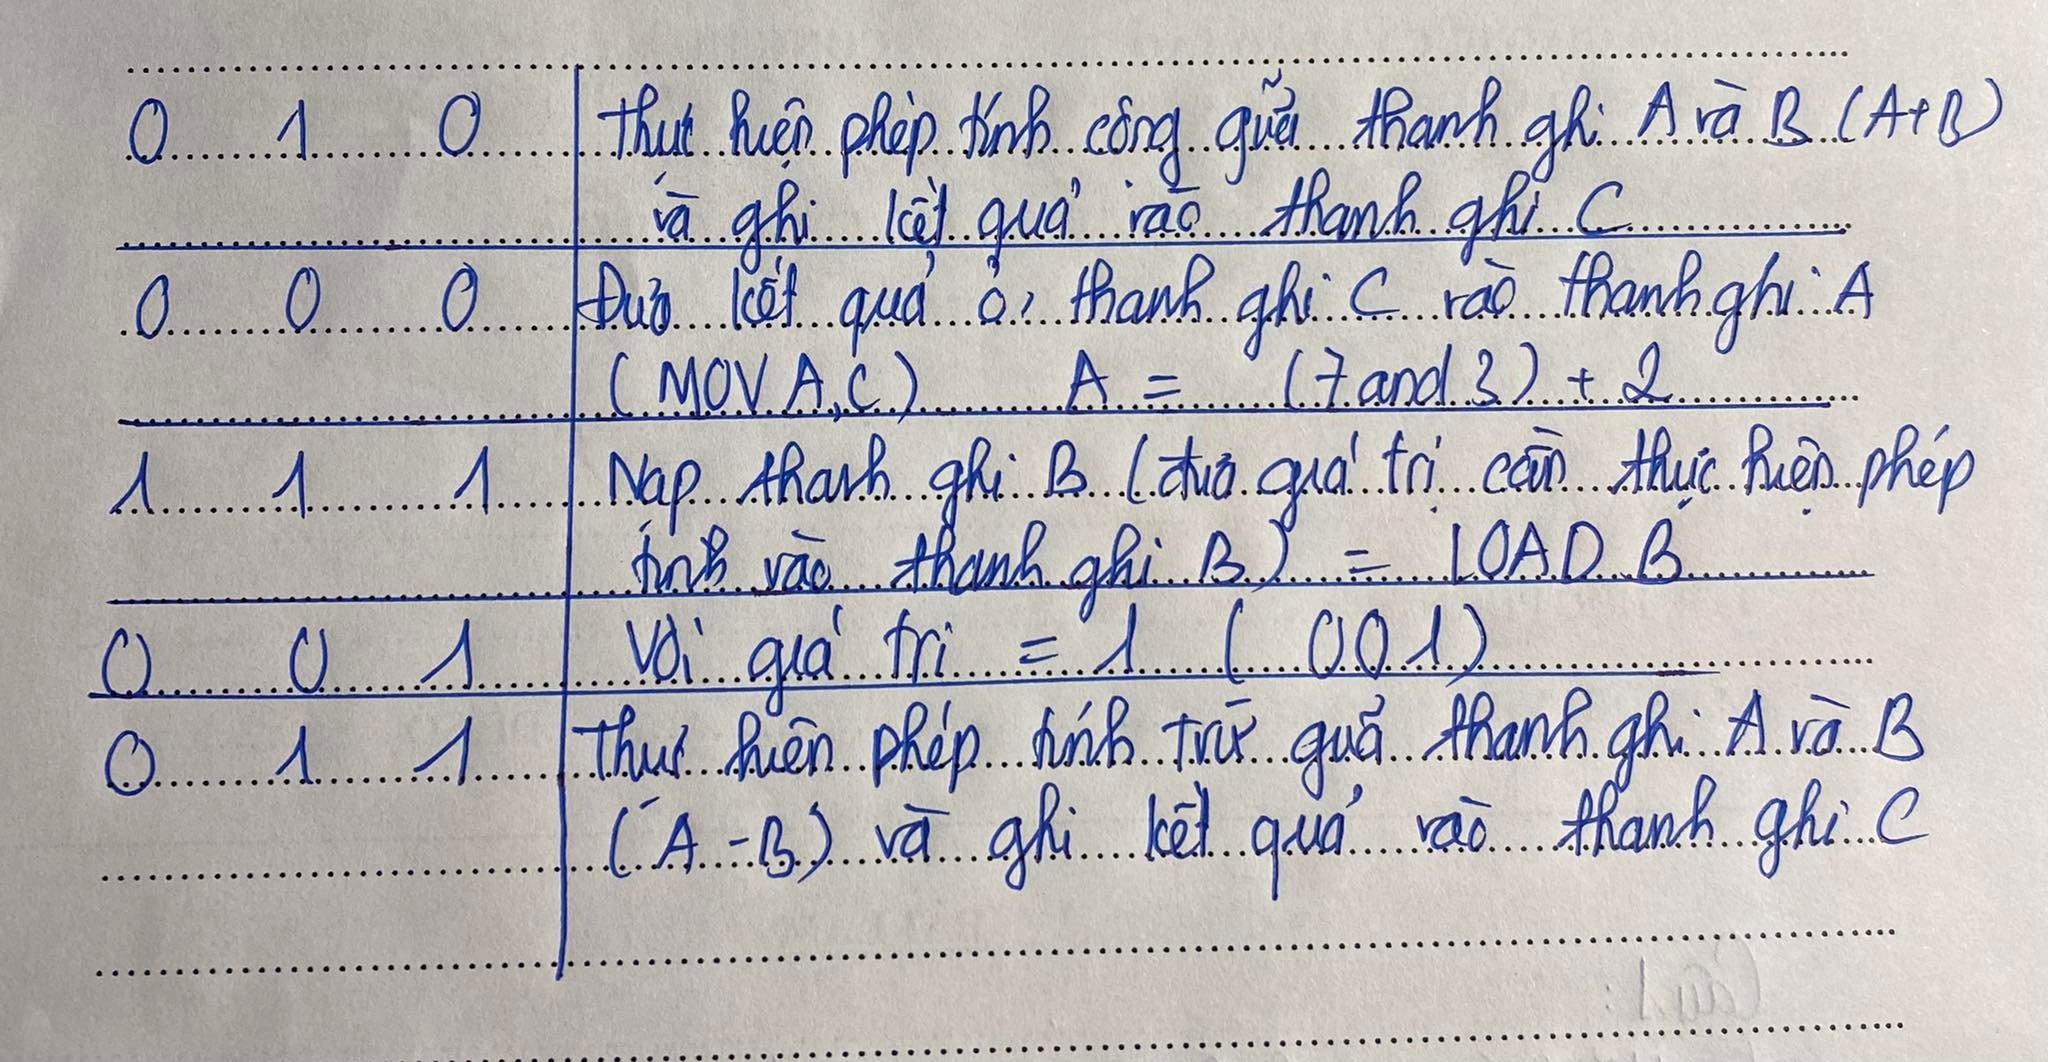 0 1 0 Thực hiện phép tính cộng giữa thanh ghi A và B (A+B)
và ghi kết quả vào thanh ghi C
0 0 0 Đưa kết quả ở thanh ghi C vào thanh ghi A
(MOV A,C) A = (7 and 3) + 2
1 1 1 Nạp thanh ghi B (đưa giá trị cần thực hiện phép
tính vào thanh ghi B) = LOAD B
0 0 1 Với giá trị = 1 ( 001)
0 1 1 Thực hiện phép tính trừ giữa thanh ghi A và B
(A - B) và ghi kết quả vào thanh ghi C
Câu 1: